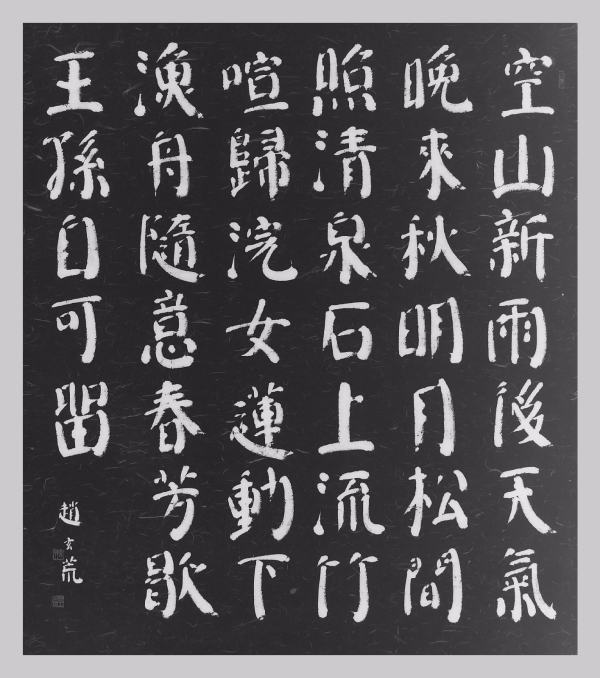 空山新雨後天氣
晚來秋明月松間
照清泉石上流竹
喧歸浣女蓮動下
漁舟隨意春芳歇
王孫自可留
趙玄荒